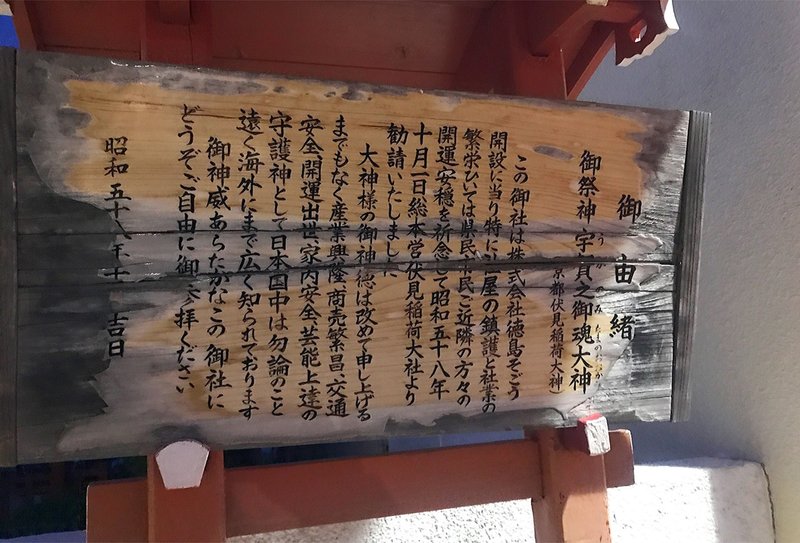 御由緒
御祭神 宇迦之御魂大神
うかのみたまのおおかみ
京都伏見稲荷大神)
この御社は株式会社徳島そごう
開設に当り特に 屋の鎮護と社業の
繁栄ひいては県民市民ご近隣の方々の
開運安穏を祈念して昭和五十八年
十月一日総本営伏見稲荷大社より
勧請いたしました
大神様の御神徳は改めて申し上げる
までもなく産業興隆、商売繁昌、交通
安全、開運出世、家内安全、芸能上達の
守護神として日本国中は勿論のこと
遠く海外にまで広く知られております
御神威あらたかなこの御社に
どうぞご自由に御参拝ください
昭和五十八年十 吉日